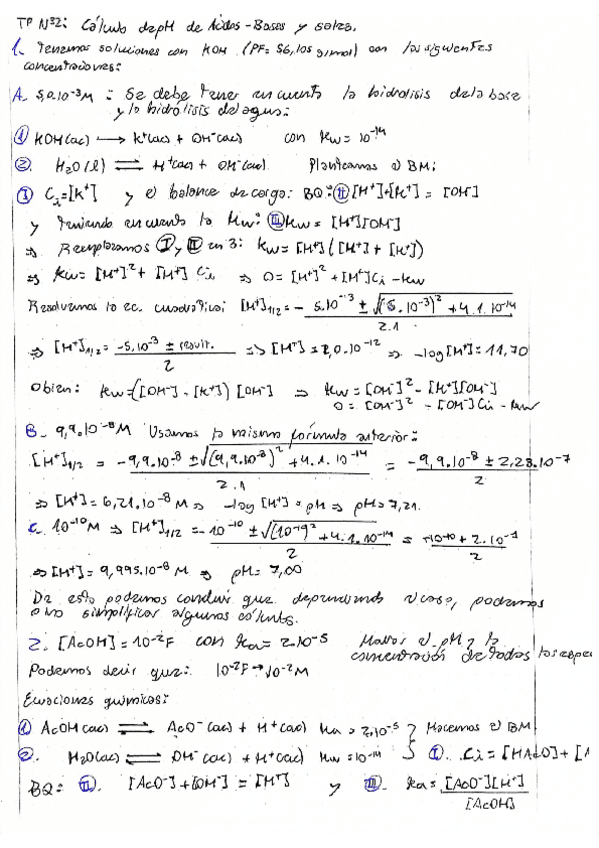 TP Nº2: Cálculo de pH de Ácidos-Bases y sales.
1. Tenemos soluciones con KOH (PF= 56,105 g/mol) con las siguientes
concentraciones:
A. 5,0.10⁻³M : Se debe tener en cuenta la hidrólisis de la base
y la hidrólisis del agua:
① KOH(ac) → K⁺(ac) + OH⁻(ac) con Kw = 10⁻¹⁴
②. H₂O(l) ⇌ H⁺(ac) + OH⁻(ac). Planteamos el BM:
Ⓘ Ci=[K⁺] y el balance de carga: BQ: Ⓘ︎Ⓘ [H⁺]+[K⁺] = [OH⁻]
y teniendo en cuenta la Kw: III Kw = [H⁺][OH⁻]
⇒ Reemplazamos I y II en 3: Kw = [H⁺]([H⁺] + [K⁺])
⇒ Kw = [H⁺]² + [H⁺] Ci ⇒ 0 = [H⁺]² + [H⁺]Ci - Kw
Resolvemos la ec. cuadrática: [H⁺]₁/₂ = - 5.10⁻³ ± √(5.10⁻³)² + 4.1.10⁻¹⁴ / 2.1
⇒ [H⁺]₁/₂ = -5.10⁻³ ± result. / 2 ⇒ [H⁺] = 2,0.10⁻¹² ⇒ -log[H⁺] = 11,70
O bien: Kw = ([OH⁻] - [K⁺]) [OH⁻] ⇒ Kw = [OH⁻]² - [K⁺][OH⁻]
0 = [OH⁻]² - [OH⁻]Ci - Kw
B. 9,9.10⁻⁸M Usamos la misma fórmula anterior:
[H⁺]₁/₂ = -9,9.10⁻⁸ ± √(9,9.10⁻⁸)² + 4.1.10⁻¹⁴ / 2.1 = -9,9.10⁻⁸ ± 2,23.10⁻⁷ / 2
⇒ [H⁺] = 6,21.10⁻⁸ M ⇒ -log [H⁺] = pH ⇒ pH = 7,21.
C. 10⁻¹⁰M ⇒ [H⁺]₁/₂ = -10⁻¹⁰ ± √(10⁻¹⁰)² + 4.1.10⁻¹⁴ / 2 = -10⁻¹⁰ + 2.10⁻⁷ / 2
⇒ [H⁺] = 9,995.10⁻⁸ M ⇒ pH = 7,00
De esto podemos concluir que dependiendo el caso, podemos
o no simplificar algunos cálculos.
2. [AcOH] = 10⁻²F con Ka = 2.10⁻⁵ Hallar el pH y la
concentración de todas las espe
Podemos decir que: 10⁻²F → 10⁻²M
Ecuaciones químicas:
① AcOH(ac) ⇌ AcO⁻(ac) + H⁺(ac) Ka = 2.10⁻⁵ } Hacemos el BM
②. H₂O(ac) ⇌ OH⁻(ac) + H⁺(ac) Kw = 10⁻¹⁴ } I. Ci = [HAcO] + [A
BQ: II. [AcO⁻] + [OH⁻] = [H⁺] y III. Ka = [AcO⁻][H⁺] / [AcOH]